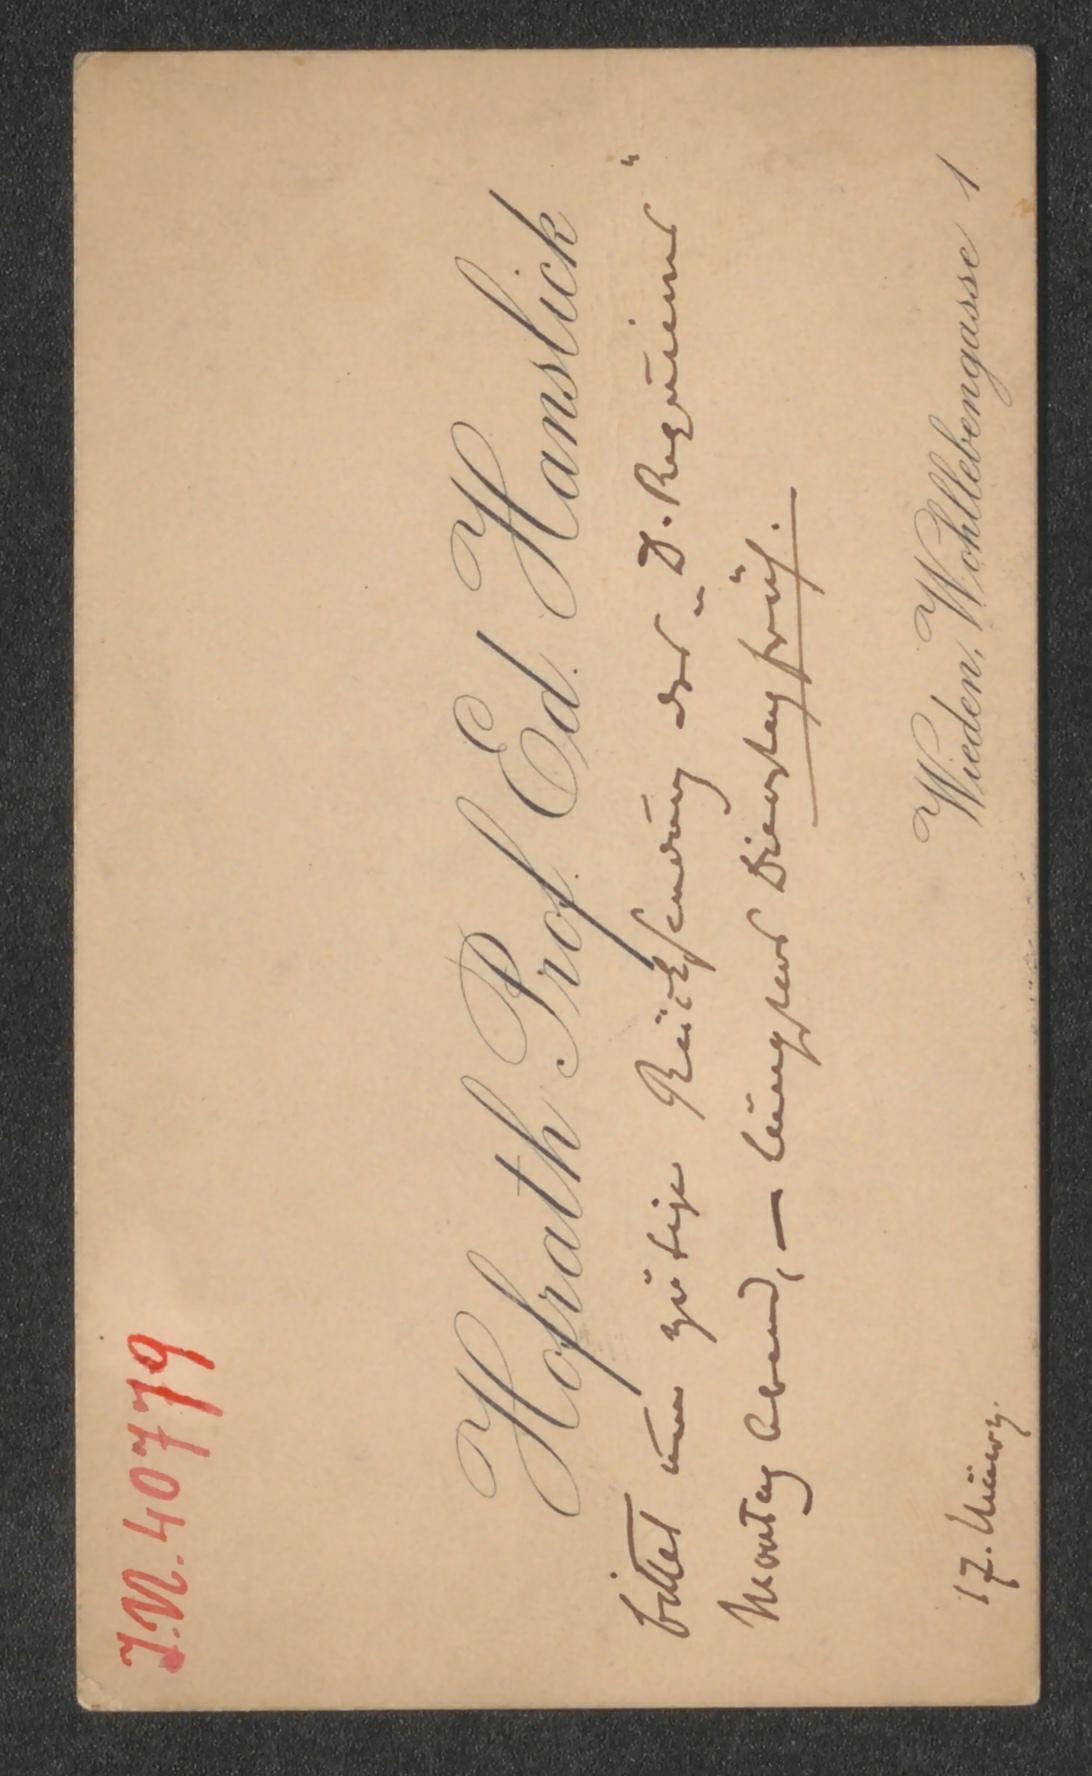 I.N. 40779
Hofrath Prof. Ed. Hanslick
bittet um gütige Rücksendung der „D. Requiem“
Montag Abend, – längstens Dienstag früh.
Wieden, Wohllebengasse 1
17. März.